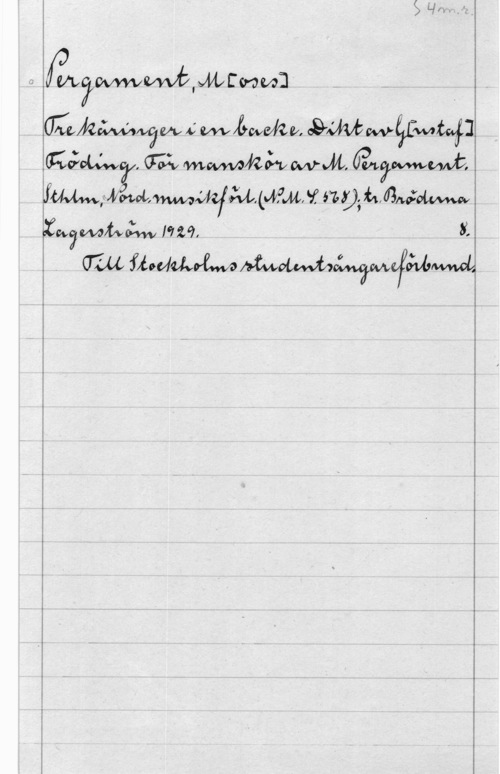 S 4 m.r.
Pergament, M[oses]
Tre käringer i en backe. Dikt av G[ustaf]
Fröding. För manskör av M. Pergament.
Sthlm, Nord. musikförl. (N.M.S. 568); tr. Bröderna
Lagerström 1929. 8.
Till Stockholms studentsångareförbund.